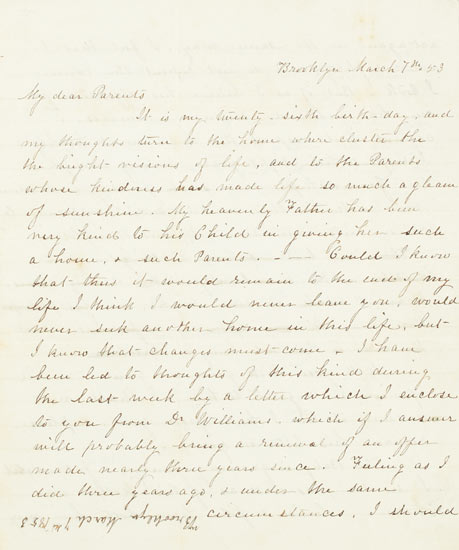 Brooklyn March 7th 53
My dear Parents
It is my twenty-sixth birth-day, and
my thoughts turn to the home where cluster the
the bright visions of life, and to the Parents
whose kindness has made life so much a gleam
of sunshine. My heavenly Father has been
very kind to his Child in giving her such
a home, & such Parents. - — Could I know
that thus it would remain to the end of my
life I think I would never leave you, would
never seek another home in this life, but
I know that changes must come. I have
been led to thoughts of this kind during
the last week by a letter which I enclose
to you from Dr Williams. which if I answer
will probably bring a renewal of an offer
made nearly three years since. Feeling as I
did three years ago, & under the same
circumstances, I should
Brooklyn March 7th 1853